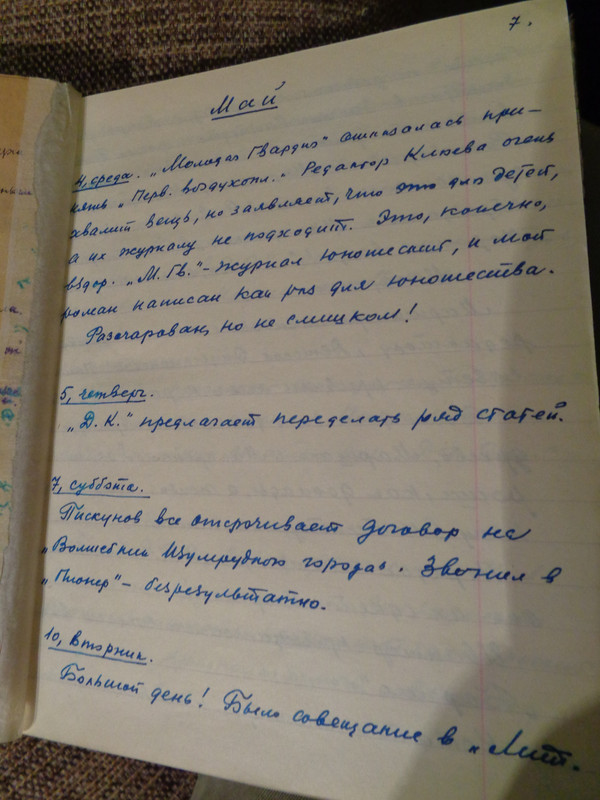 7.
Май
4, среда. „Молодая Гвардия" отказалась при-
нять „Перв. воздухопл." Редактор Клюева очень
хвалит вещь, но заявляет, что это для детей,
а их журналу не подходит. Это, конечно,
вздор. „М. Гв." - журнал юношеский, и мой
роман написан как раз для юношества.
Разочарован, но не слишком!
5, четверг.
„Д. К." предлагает переделать ряд статей.
7, суббота.
Пискунов все отсрочивает договор на
„Волшебник Изумрудного города". Звонил в
„Пионер" - безрезультатно.
10, вторник.
Большой день! Было совещание в „Лит.